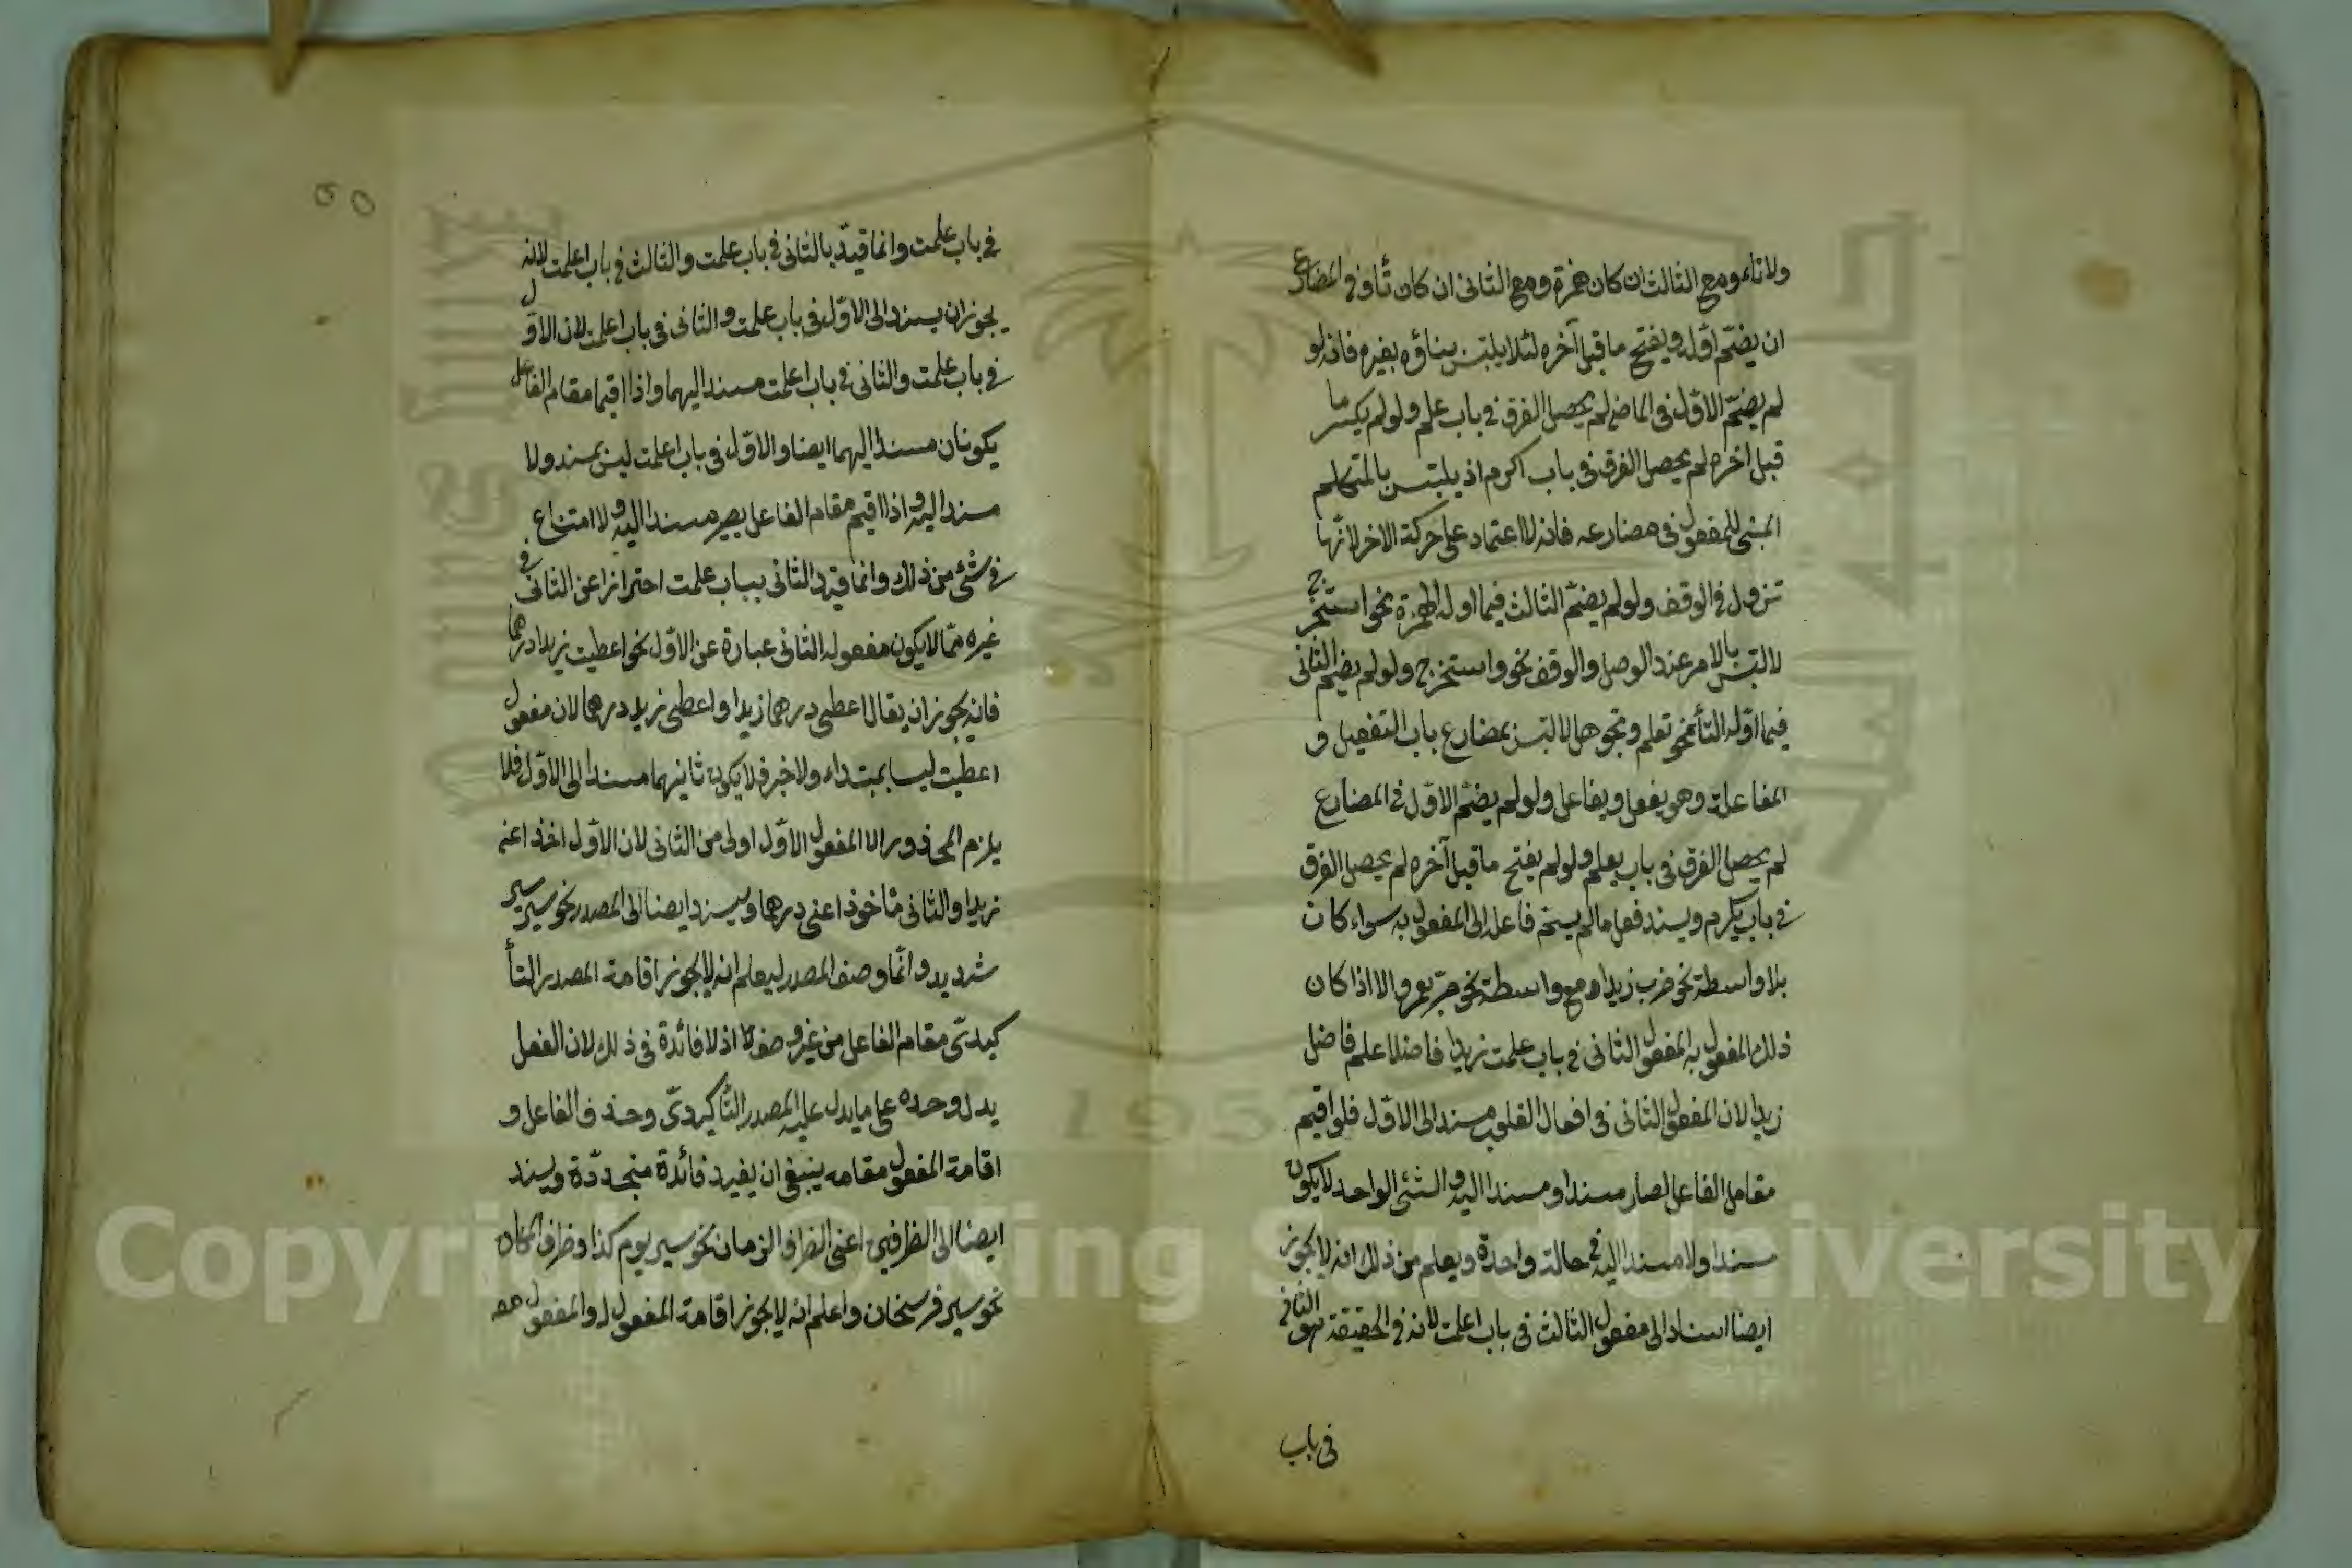 ولا تاء ومع الثالث ان كان همزة ومع الثانى ان كان تاء وفى المضارع
ان يضم اوله ويفتح ما قبل آخره لئلا يلتبس بناؤه بغيره فانه لو
لم يضم الاول فى الماضى لم يحصل الفرق فى باب علم ولو لم يكسر ما
قبل اخره لم يحصل الفرق فى باب اكرم اذ يلتبس بالمتكلم
المبنى للمفعول فى مضارعه فانه لا اعتماد على حركة الاخر لانها
تزول فى الوقف ولو لم يضم الثالث فيما اوله الهمزة نحو استخرج
لالتبس بالامر عند الوصل والوقف نحو واستخرج ولو لم يضم الثانى
فيما اوله التاء نحو تعلم وتجوهل لالتبس بمضارع باب التفعيل و
المفاعلة وهو يفعل ويفاعل ولو لم يضم الاول فى المضارع
لم يحصل الفرق فى باب يعلم ولو لم يفتح ما قبل آخره لم يحصل الفرق
فى باب يكرم ويسند فعل ما لم يسم فاعله الى المفعول به سواء كان
بلا واسطة نحو ضرب زيد او مع واسطة نحو مر بعمرو الا اذا كان
ذلك المفعول به المفعول الثانى فى باب علمت زيدا فاضلا علم فاضل
زيدا لان المفعول الثانى فى افعال القلوب مسند الى الاول فلو اقيم
مقام الفاعل لصار مسندا ومسندا اليه والشئ الواحد لا يكون
مسندا ولا مسندا اليه فى حالة واحدة ويعلم من ذلك انه لا يجوز
ايضا اسناد الى مفعول الثالث فى باب اعلمت لانه فى الحقيقة هو الثانى
فى باب
فى باب علمت وانما قيد بالثانى فى باب علمت والثالث فى باب اعلمت لانه
يجوز ان يسند الى الاول فى باب علمت والثانى فى باب اعلمت لان الاول
فى باب علمت والثانى فى باب اعلمت مسند اليهما واذا اقيما مقام الفاعل
يكونان مسندا اليهما ايضا والاول فى باب اعلمت ليس بمسند ولا
مسند اليه واذا اقيم مقام الفاعل يصير مسندا اليه ولا امتناع
فى شئ من ذلك وانما قيد الثانى بباب علمت احترازا عن الثانى فى
غيره مما لا يكون مفعوله الثانى عبارة عن الاول نحو اعطيت زيدا درهما
فانه يجوز ان يقال اعطى درهم زيدا واعطى زيد درهما لان مفعول
اعطيت ليسا بمبتداء ولا خبر فلا يكون ثانيهما مسندا الى الاول فلا
يلزم المحذور الا المفعول الاول اولى من الثانى لان الاول اخذ اعنى
زيدا والثانى مأخوذ اعنى درهما ويسند ايضا الى المصدر نحو سير سير
شديد وانما وصف المصدر ليعلم انه لا يجوز اقامة المصدر التأ
كيدى مقام الفاعل من غير وصف اذ لا فائدة فى ذلك لان الفعل
يدل وحده على ما يدل عليه المصدر التأكيدى وحذف الفاعل و
اقامة المفعول مقامه ينبغى ان يفيد فائدة متجددة ويسند
ايضا الى الظرفين اعنى الظرف الزمان نحو سير يوم كذا وظرف المكان
نحو سير فرسخان واعلم انه لا يجوز اقامة المفعول له والمفعول معه
Copyright © King Saud University